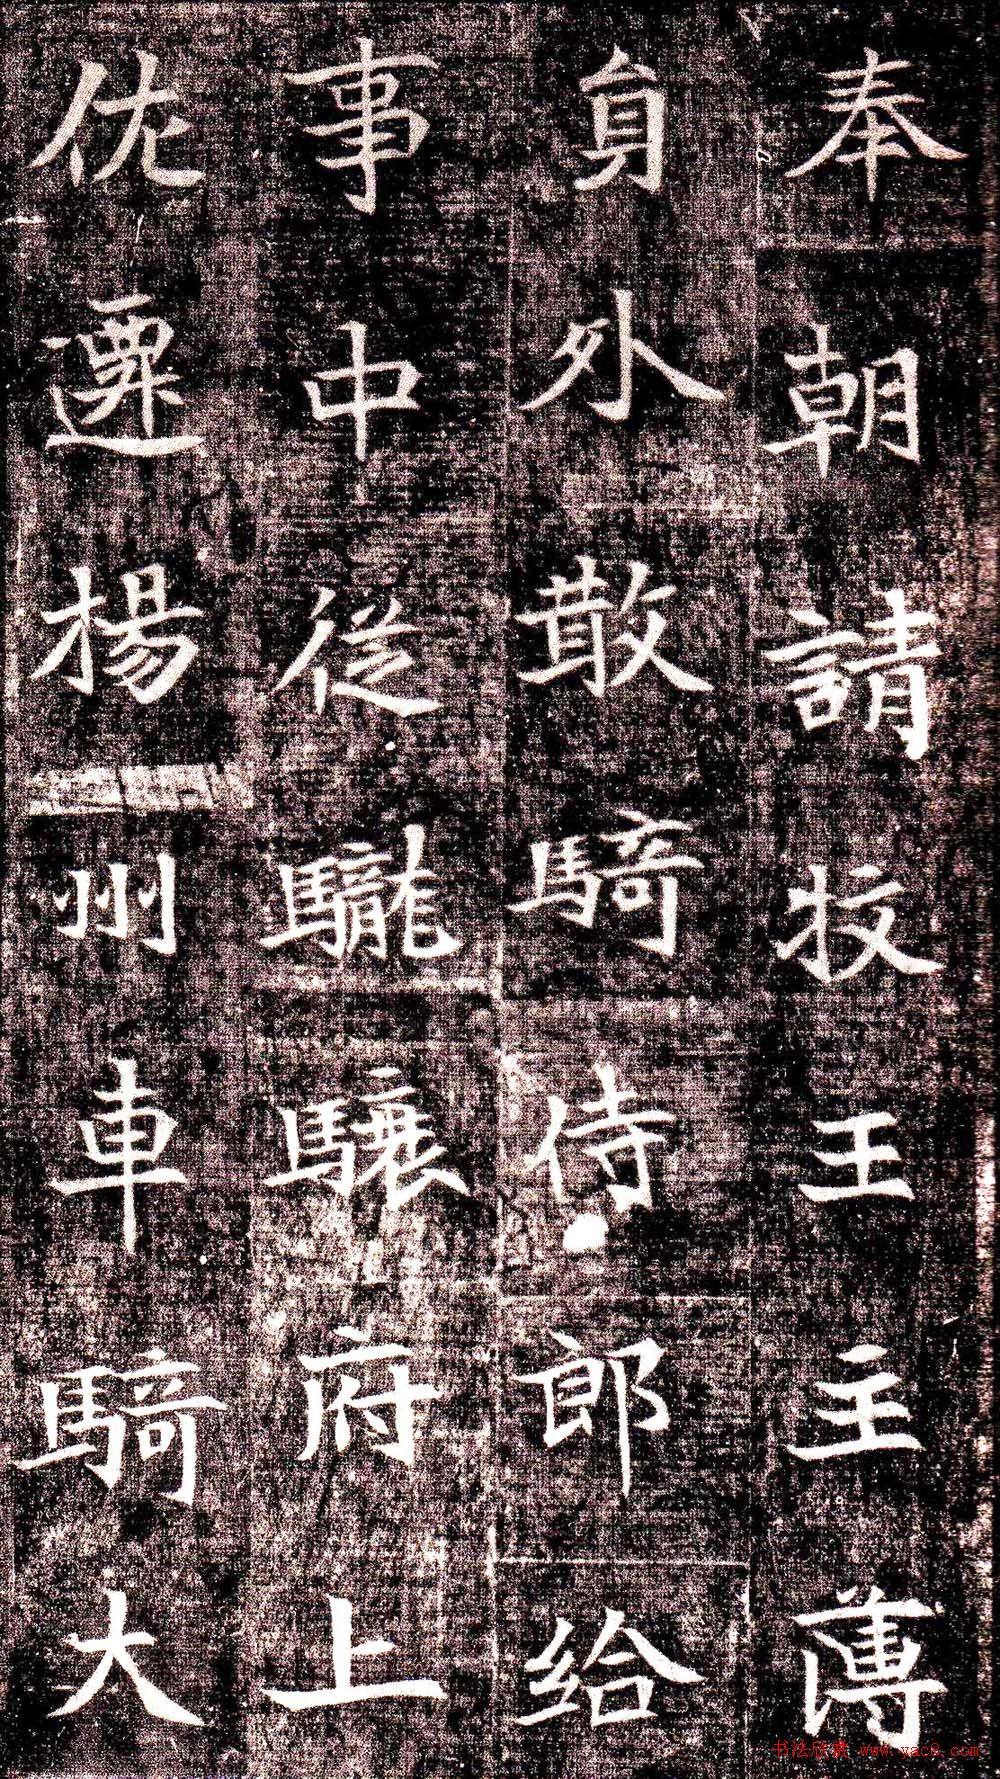 奉朝請挍王主薄
員外散騎侍郎給
事中從驡驤府上
佐遷揚州車騎大
书法欣赏 www.yac8.com